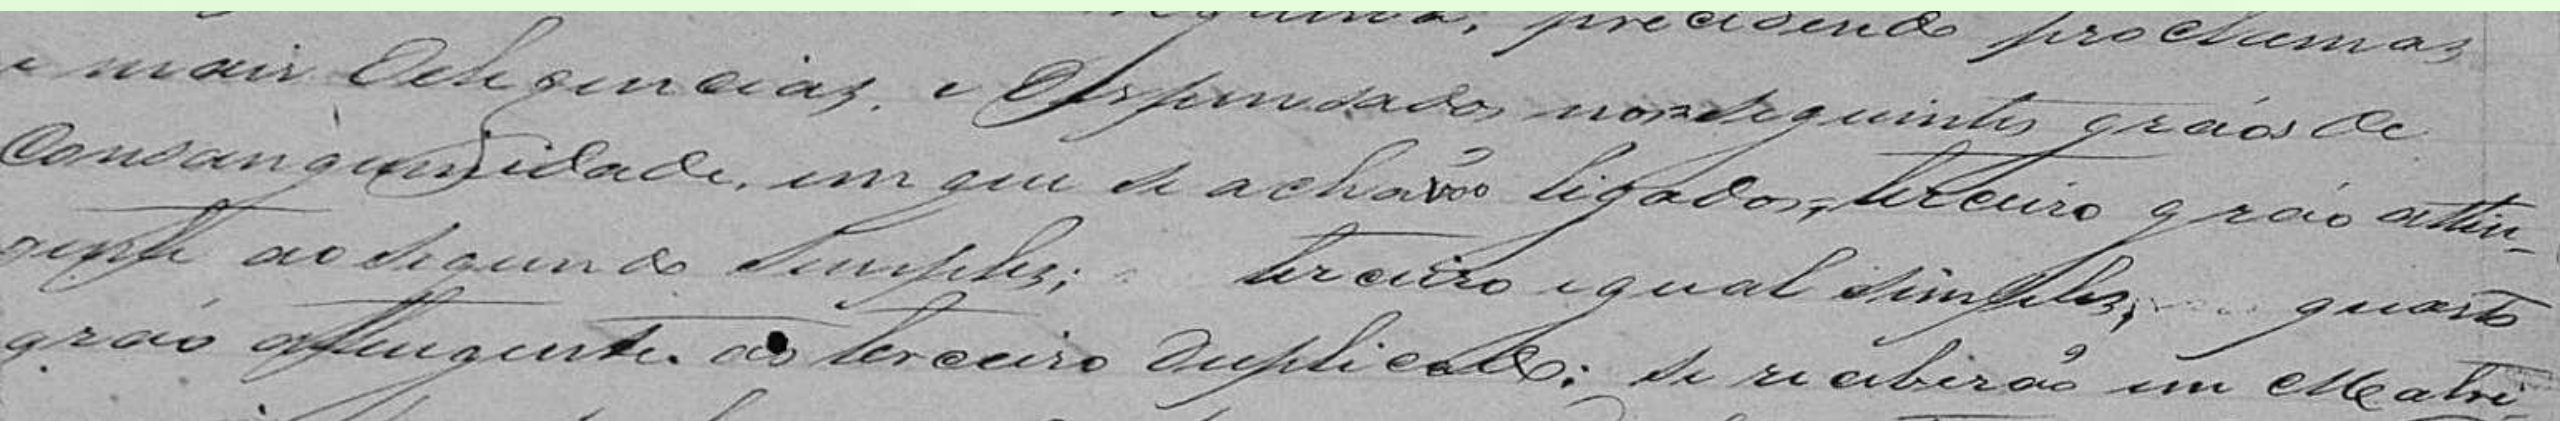 precedendo proclamas
e mais deligencias, e dispensados nos seguintes gráos de
Consanguinidade, em que se achavão ligados; terceiro gráo attin-
gente ao segundo simples; terceiro igual simples; quarto
gráo attingente ao terceiro duplicado; se receberão em Matri